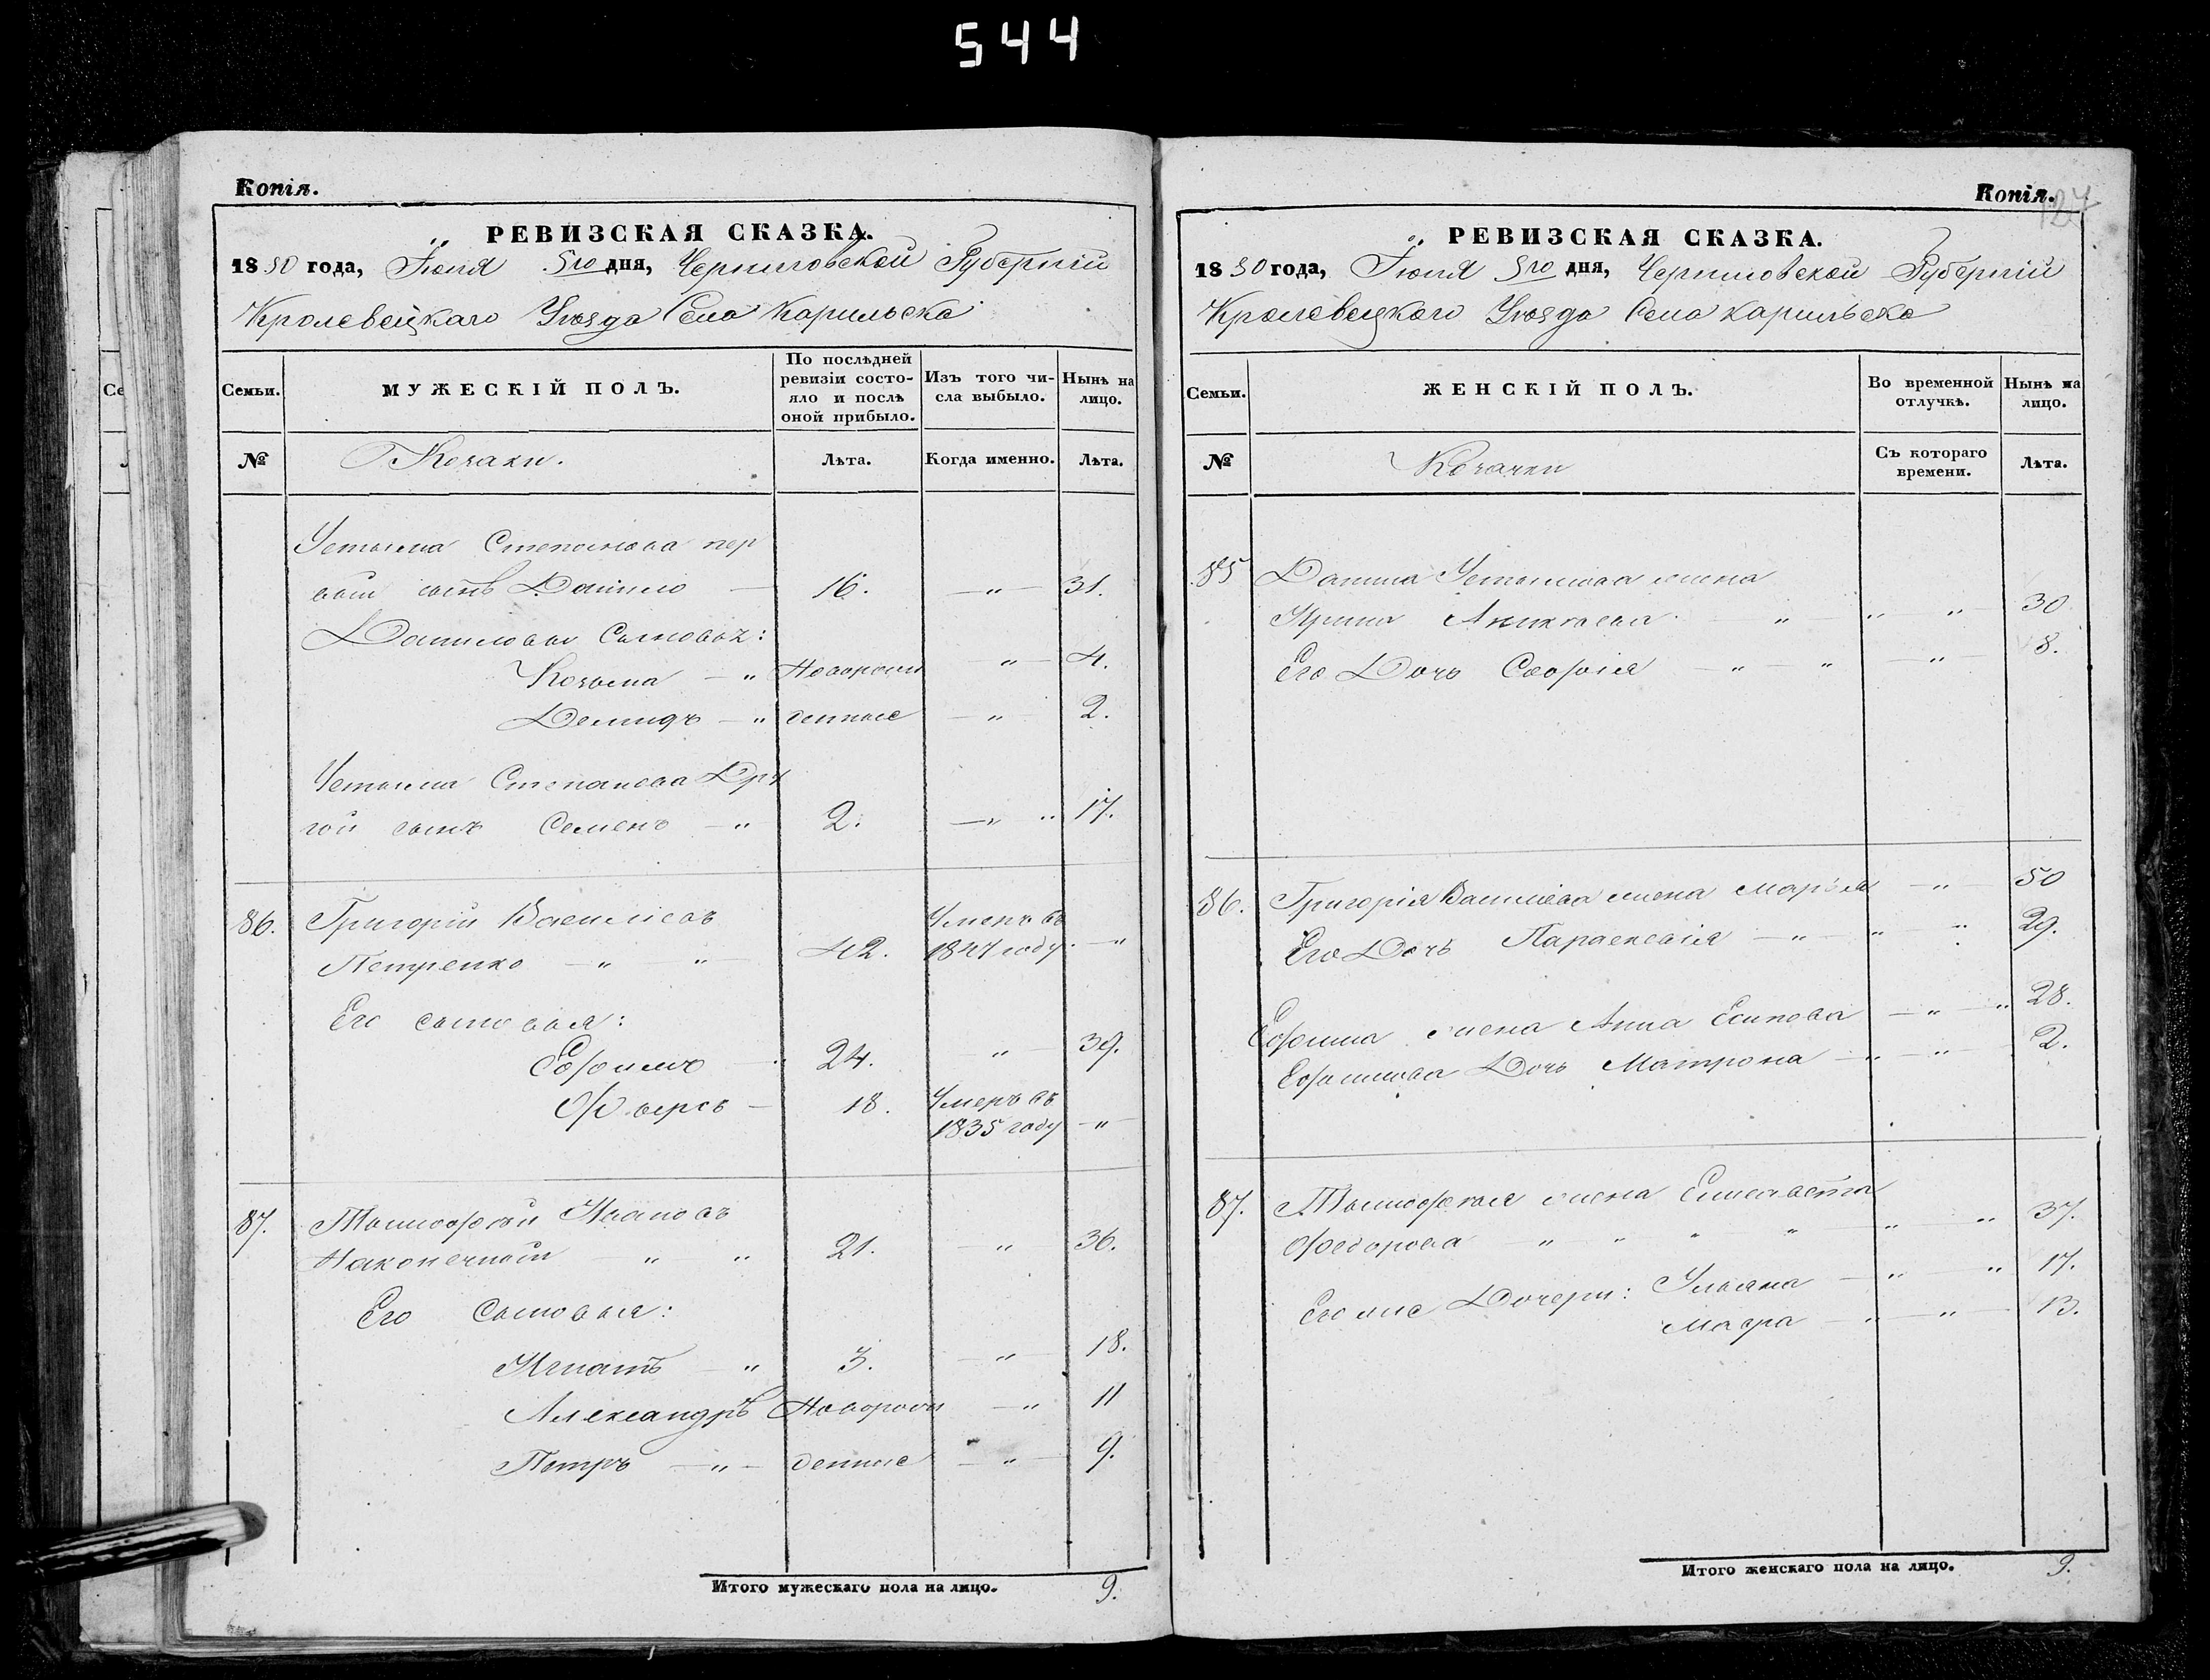 544
Копія.
РЕВИЗСКАЯ СКАЗКА.
1850 года, Іюля 5го дня, Черниговской Губерніи
Кролевецкаго Уѣзда Села Карильска
Семьи.
МУЖЕСКІЙ ПОЛЪ.
По послѣдней ревизіи состо-
яло и послѣ оной прибыло.
Изъ того чи-
сла выбыло.
Нынѣ на
лицо.
№
Козаки.
Лѣта.
Когда именно.
Лѣта.
Устима Степанова пер
вый сынъ Данило — 16. —„— 31.
Даниловы Сыновья:
Козьма — „ Новорож „ — 4.
Демидъ — „ денные — „ 2.
Устима Степанова Дру
гой сынъ Семенъ — „ 2. —„ „ 17.
86. Григорій Васильевъ Умеръ въ
Петренко — „ — „ 42. 1847 году. — „
Его сыновья:
Ефимъ — „ 24. — „ — 39.
Фирсъ — 18. Умеръ въ
1835 году — „ —
87. Тимофей Ивановъ
Наконечный „ „ 21. — „ 36.
Его Сыновья:
Игнатъ — „ 3. — „ — 18.
Александръ Новорож — „ 11
Петръ — „ — денные — „ — 9.
Итого мужескаго пола на лицо. 9.
Копія.
127
РЕВИЗСКАЯ СКАЗКА.
1850 года, Іюля 5го дня, Черниговской Губерніи
Кролевецкаго Уѣзда Села Карильска
Семьи.
ЖЕНСКІЙ ПОЛЪ.
Во временной
отлучкѣ.
Нынѣ на
лицо.
№
Козачки
Съ котораго
времени.
Лѣта.
85 Данила Устимова жена
Ирина Аникѣева — „ „ „ — 30
Его Дочь Софія — „ — „ — „ — 8.
86. Григорія Васильева жена Марья — „ — 50
Его Дочь Параскевія — „ — „ — „ 29.
Ефима жена Анна Есипова — „ — „ 28.
Ефимова Дочь Матрона — „ — „ 2.
87. Тимофея жена Елисавета
Федорова — „ „ „ „ — „ — „ 37.
Его же Дочери: Ульяна — „ — „ 17.
Мафра — „ — „ — 13.
Итого женскаго пола на лицо. 9.